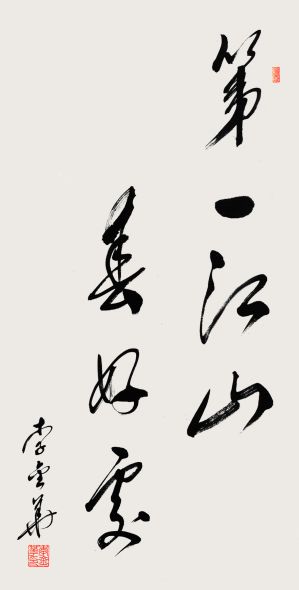 第一江山
春好處
李金華